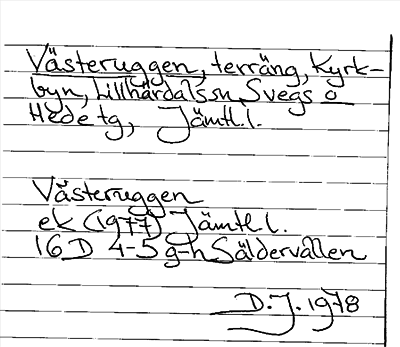 Västeruggen, terräng, Kyrk-
byn, Lillhärdals sn, Svegs o
Hede tg, Jämtl. l.
Västeruggen
ek (1977) Jämtl l.
16D 4-5 g-h Säldervallen
D.J. 1978